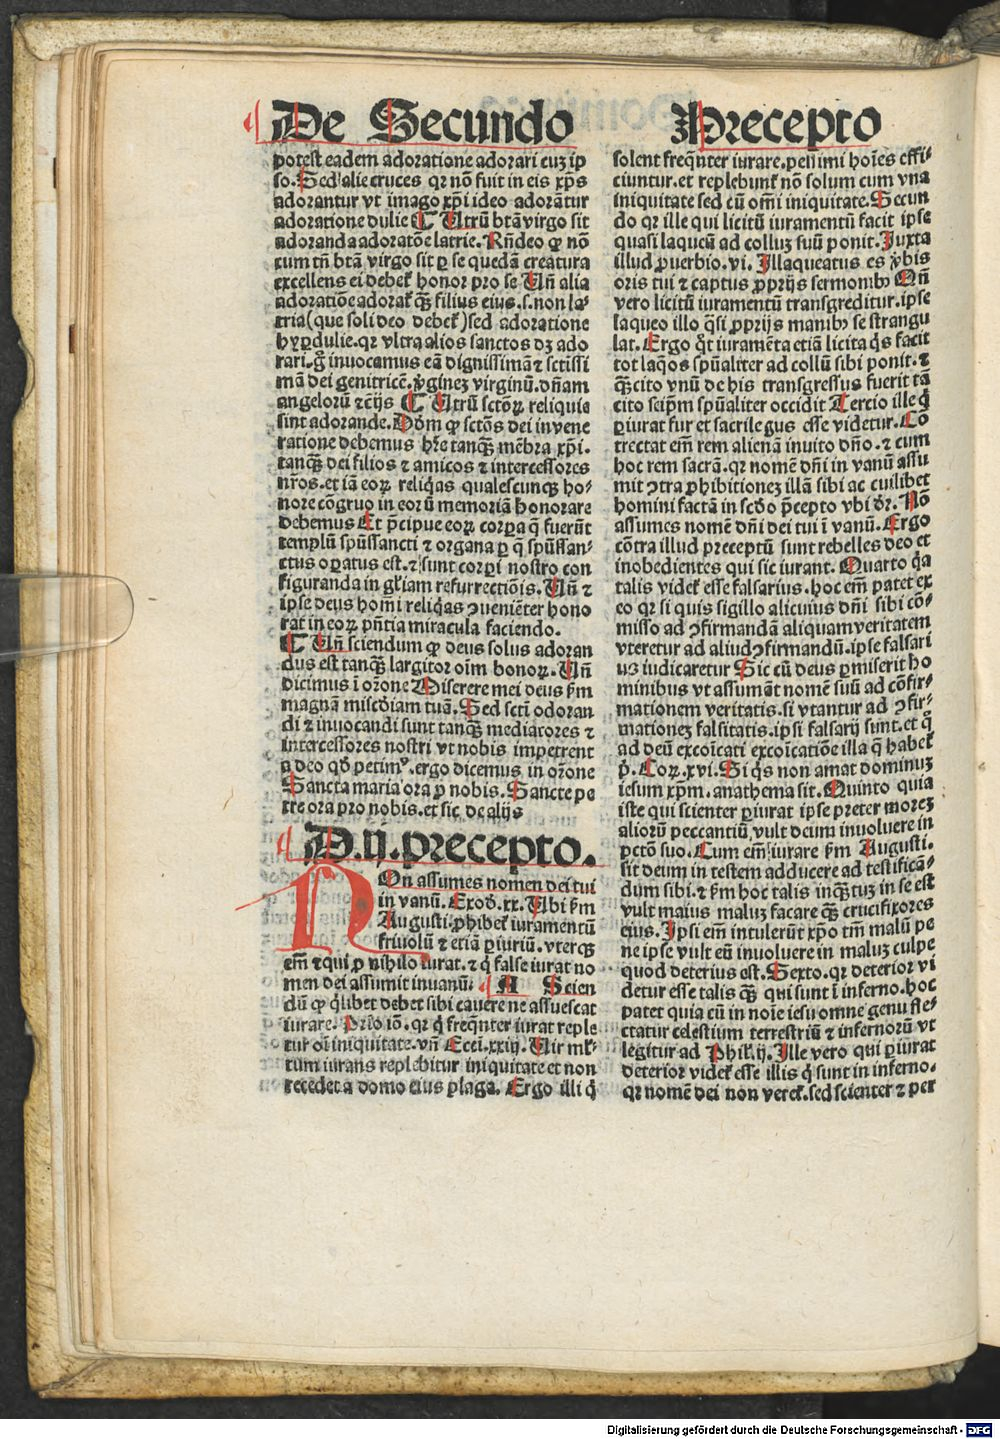 De Secundo Precepto
potest eadem adoratione adorari cuȝ ip
so. Sed alie cruces qꝛ nō fuit in eis xp̄s
adorantur vt imago xp̄i ideo adorātur
adoratione dulie ¶ Utrū btā virgo sit
adoranda adoratōe latrie. Rñdeo ꝙ nō
cum tñ btā virgo sit ꝑ se quedā creatura
excellens ei debet͛ honor pro se Uñ alia
adoratiōe adorat͛ qȝ̄ filius eius .s. non la⸗
tria (que soli deo debet͛) sed adoratione
hyꝑdulie. qꝛ vltra alios sanctos dȝ ado
rari. gͦ inuocamus eā dignissimā ⁊ sctissi
mā dei genitricē. v̓gineȝ virginū. dñam
angelorū ⁊ cētīs ¶ Utrū sctōꝝ reliquie
sint adorande. Dōm ꝙ sctōs dei in vene
ratione debemus hr̄e tanqȝ̄ mēbra xp̄i.
tanqȝ̄ dei filios ⁊ amicos ⁊ intercessores
nr̄os. et iā eoꝝ reliq̄as qualescunqȝ ho⸗
nore cōgruo in eorū memoriā honorare
debemus Et p̄cipue eoꝝ corꝑa q̄ fuerūt
templū spūssancti ⁊ organa ꝑ q̄ spūssan⸗
ctus oꝑatus est. ⁊ sunt corꝑi nostro con
figuranda in gl̄iam resurrectiōis. Uñ ⁊
ipse deus homi reliq̄as ꝯueniēter hono
rat in eoꝝ pñtia miracula faciendo.
¶ Uñ sciendum ꝙ deus solus adoran
dus est tanqȝ̄ largitor oīm bonoꝝ. Uñ
dicimus ī orōne Miserere mei deus ẜm
magnā miscd̓iam tuā. Sed scti odoran
di ⁊ inuocandi sunt tanqȝ̄ mediatores ⁊
intercessores nostri vt nobis impetrent
a deo qd̓ petimꝰ. ergo dicemus in orōne
Sancta maria ora ꝓ nobis. Sancte pe
tre ora pro nobis. et sic de alijs
D .ij. precepto.
NOn assumes nomen dei tui
in vanū. Exod. xx. Ubi ẜm
Augusti. ꝓhibet͛ iuramentū
friuolū ⁊ etiā ꝑiuriū. vterqȝ
em̄ ⁊ qui ꝓ nihilo iurat. ⁊ q̓ false iurat no
men dei assumit in vanū. ¶ A Scien
dū ꝙ q̓libet debet sibi cauere ne assuescat
iurare. Prīo iō. qꝛ q̓ freq̄nter iurat reple
tur oī iniquitate. vñ Ecci. xxiij. Uir ml̓
tum iurans replebitur iniquitate et non
recedet a domo eius plaga. Ergo illi q̓
solent freq̄nter iurare. pessimi hoīes effi⸗
ciuntur. et replebunt͛ nō solum cum vna
iniquitate sed cū omī iniquitate. Secun
do qꝛ ille qui licitū iuramentū facit ipse
quasi laqueū ad colluȝ suū ponit. Juxta
illud ꝓuerbio. vi. Illaqueatus es v̓bis
oris tui ⁊ captus ꝓprijs sermonibꝰ Qñ
vero licitū iuramentū transgreditur. ipse
laqueo illo q̄si ꝓprijs manibꝰ se strangu
lat. Ergo q̓t iuramēta etiā licita q̓s facit
tot laq̄os spūaliter ad collū sibi ponit. ⁊
qȝ̄cito vnū de his transgressus fuerit tā
cito seipm̄ spūaliter occidit Tercio ille q̓
ꝑiurat fur et sacrilegus esse videtur. Cō
trectat em̄ rem alienā inuito dño. ⁊ cum
hoc rem sacrā. qꝛ nomē dñi in vanū assu
mit ꝯtra ꝓhibitioneȝ illā sibi ac cuilibet
homini factā in scd̓o p̄cepto vbi dr̄. Nō
assumes nomē dñi dei tui ī vanū. Ergo
cōtra illud preceptū sunt rebelles deo et
inobedientes qui sic iurant. Quarto q̓a
talis videt͛ esse falsarius. hoc em̄ patet ex
eo qꝛ si quis sigillo alicuius dñi sibi cō⸗
misso ad ꝯfirmandā aliquam veritatem
vteretur ad aliud ꝯfirmandū. ipse falsari
us iudicaretur Sic cū deus ꝑmiserit ho
minibus vt assumāt nomē suū ad cōfir⸗
mationem veritatis. si vtantur ad ꝯfir⸗
mationeȝ falsitatis. ipsi falsarij sunt. et q̓
ad deū excoīcati excoīcatiōe illa q̄ habet͛
p̓. Coꝝ. xvi. Si q̓s non amat dominuȝ
iesum xp̄m. anathema sit. Quinto quia
iste qui scienter ꝑiurat ipse preter moreȝ
aliorū peccantiū, vult deum inuoluere in
pctō suo. Cum em̄ iurare ẜm Augusti.
sit deum in testem adducere ad testificā⸗
dum sibi. ⁊ ẜm hoc talis inqȝ̄tuȝ in se est
vult maius maluȝ facare qȝ̄ crucifixores
eius. Ipsi em̄ intulerūt xp̄o tm̄ malū pe
ne ipse vult eū inuoluere in maluȝ culpe
quod deterius est. Sexto. qꝛ deterior vi
detur esse talis qȝ̄ qui sunt ī inferno. hoc
patet quia cū in noīe iesu omne genu fle⸗
ctatur celestium terrestriū ⁊ infernorū vt
legitur ad Phil̓. ij. Ille vero qui ꝑiurat
deterior videt͛ esse illis q̓ sunt in inferno.
qꝛ nomē dei non veret͛. sed scienter ⁊ per
Digitalisierung gefördert durch die Deutsche Forschungsgemeinschaft - DFG